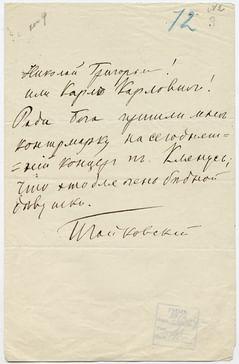 12
Николай Григорьич!
или Карл Карлович!
Ради Бога пришли мне
контрмарку на сегоднеш-
=ний концерт
что это для очень бедной
девушки.
ПЧайковский